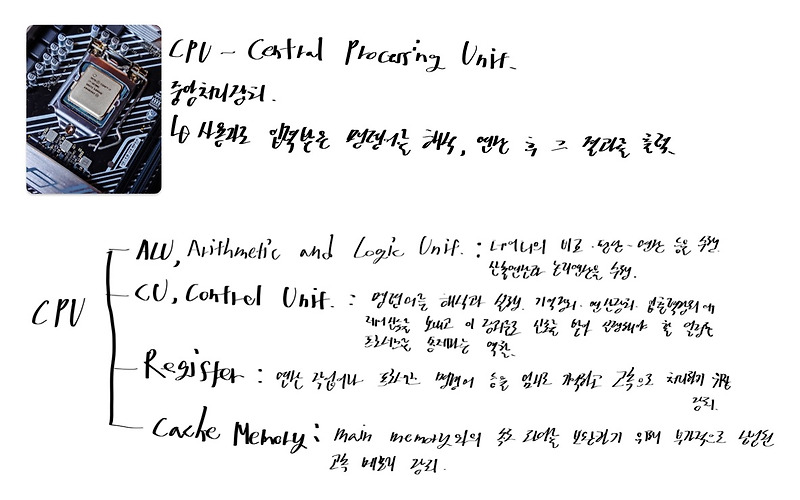 CPU - Central Processing Unit.
중앙처리장치.
↳ 사용자로 입력받은 명령어를 해석, 연산 후 그 결과를 출력
CPU
ALU, Arithmetic and Logic Unit. : 데이터의 비교·판단·연산 등을 수행
산술연산과 논리연산을 수행.
CU, Control Unit. : 명령어를 해석과 실행. 기억장치·연산장치·입출력장치에
제어신호를 보내고 이 장치로 신호를 받아 실행되어야 할
역할.
Register : 연산 프로그램 명령어 등을 임시로 기억하고 고속으로 처리하기 위한
장치.
Cache Memory : main memory와의 속도 차이를 보완하기 위해 부가적으로
고속 메모리 장치.